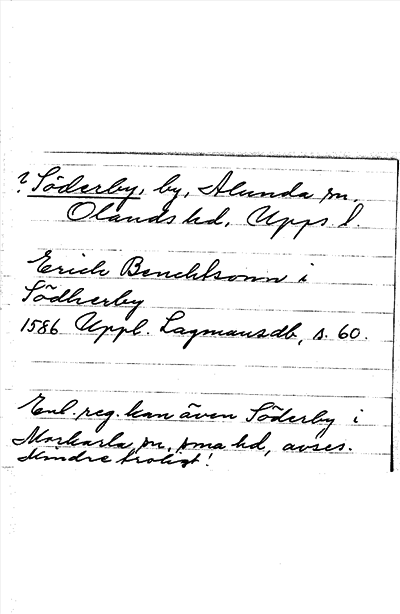 ? Söderby, by, Alunda sn,
Olands hd, Upps. l.
Erich Benchtsonn i
Södherby
1586 Uppl. Lagmansdb, s. 60.
Enl. reg. kan även Söderby i
Morkarla sn, sma hd, avses.
Mindre troligt!